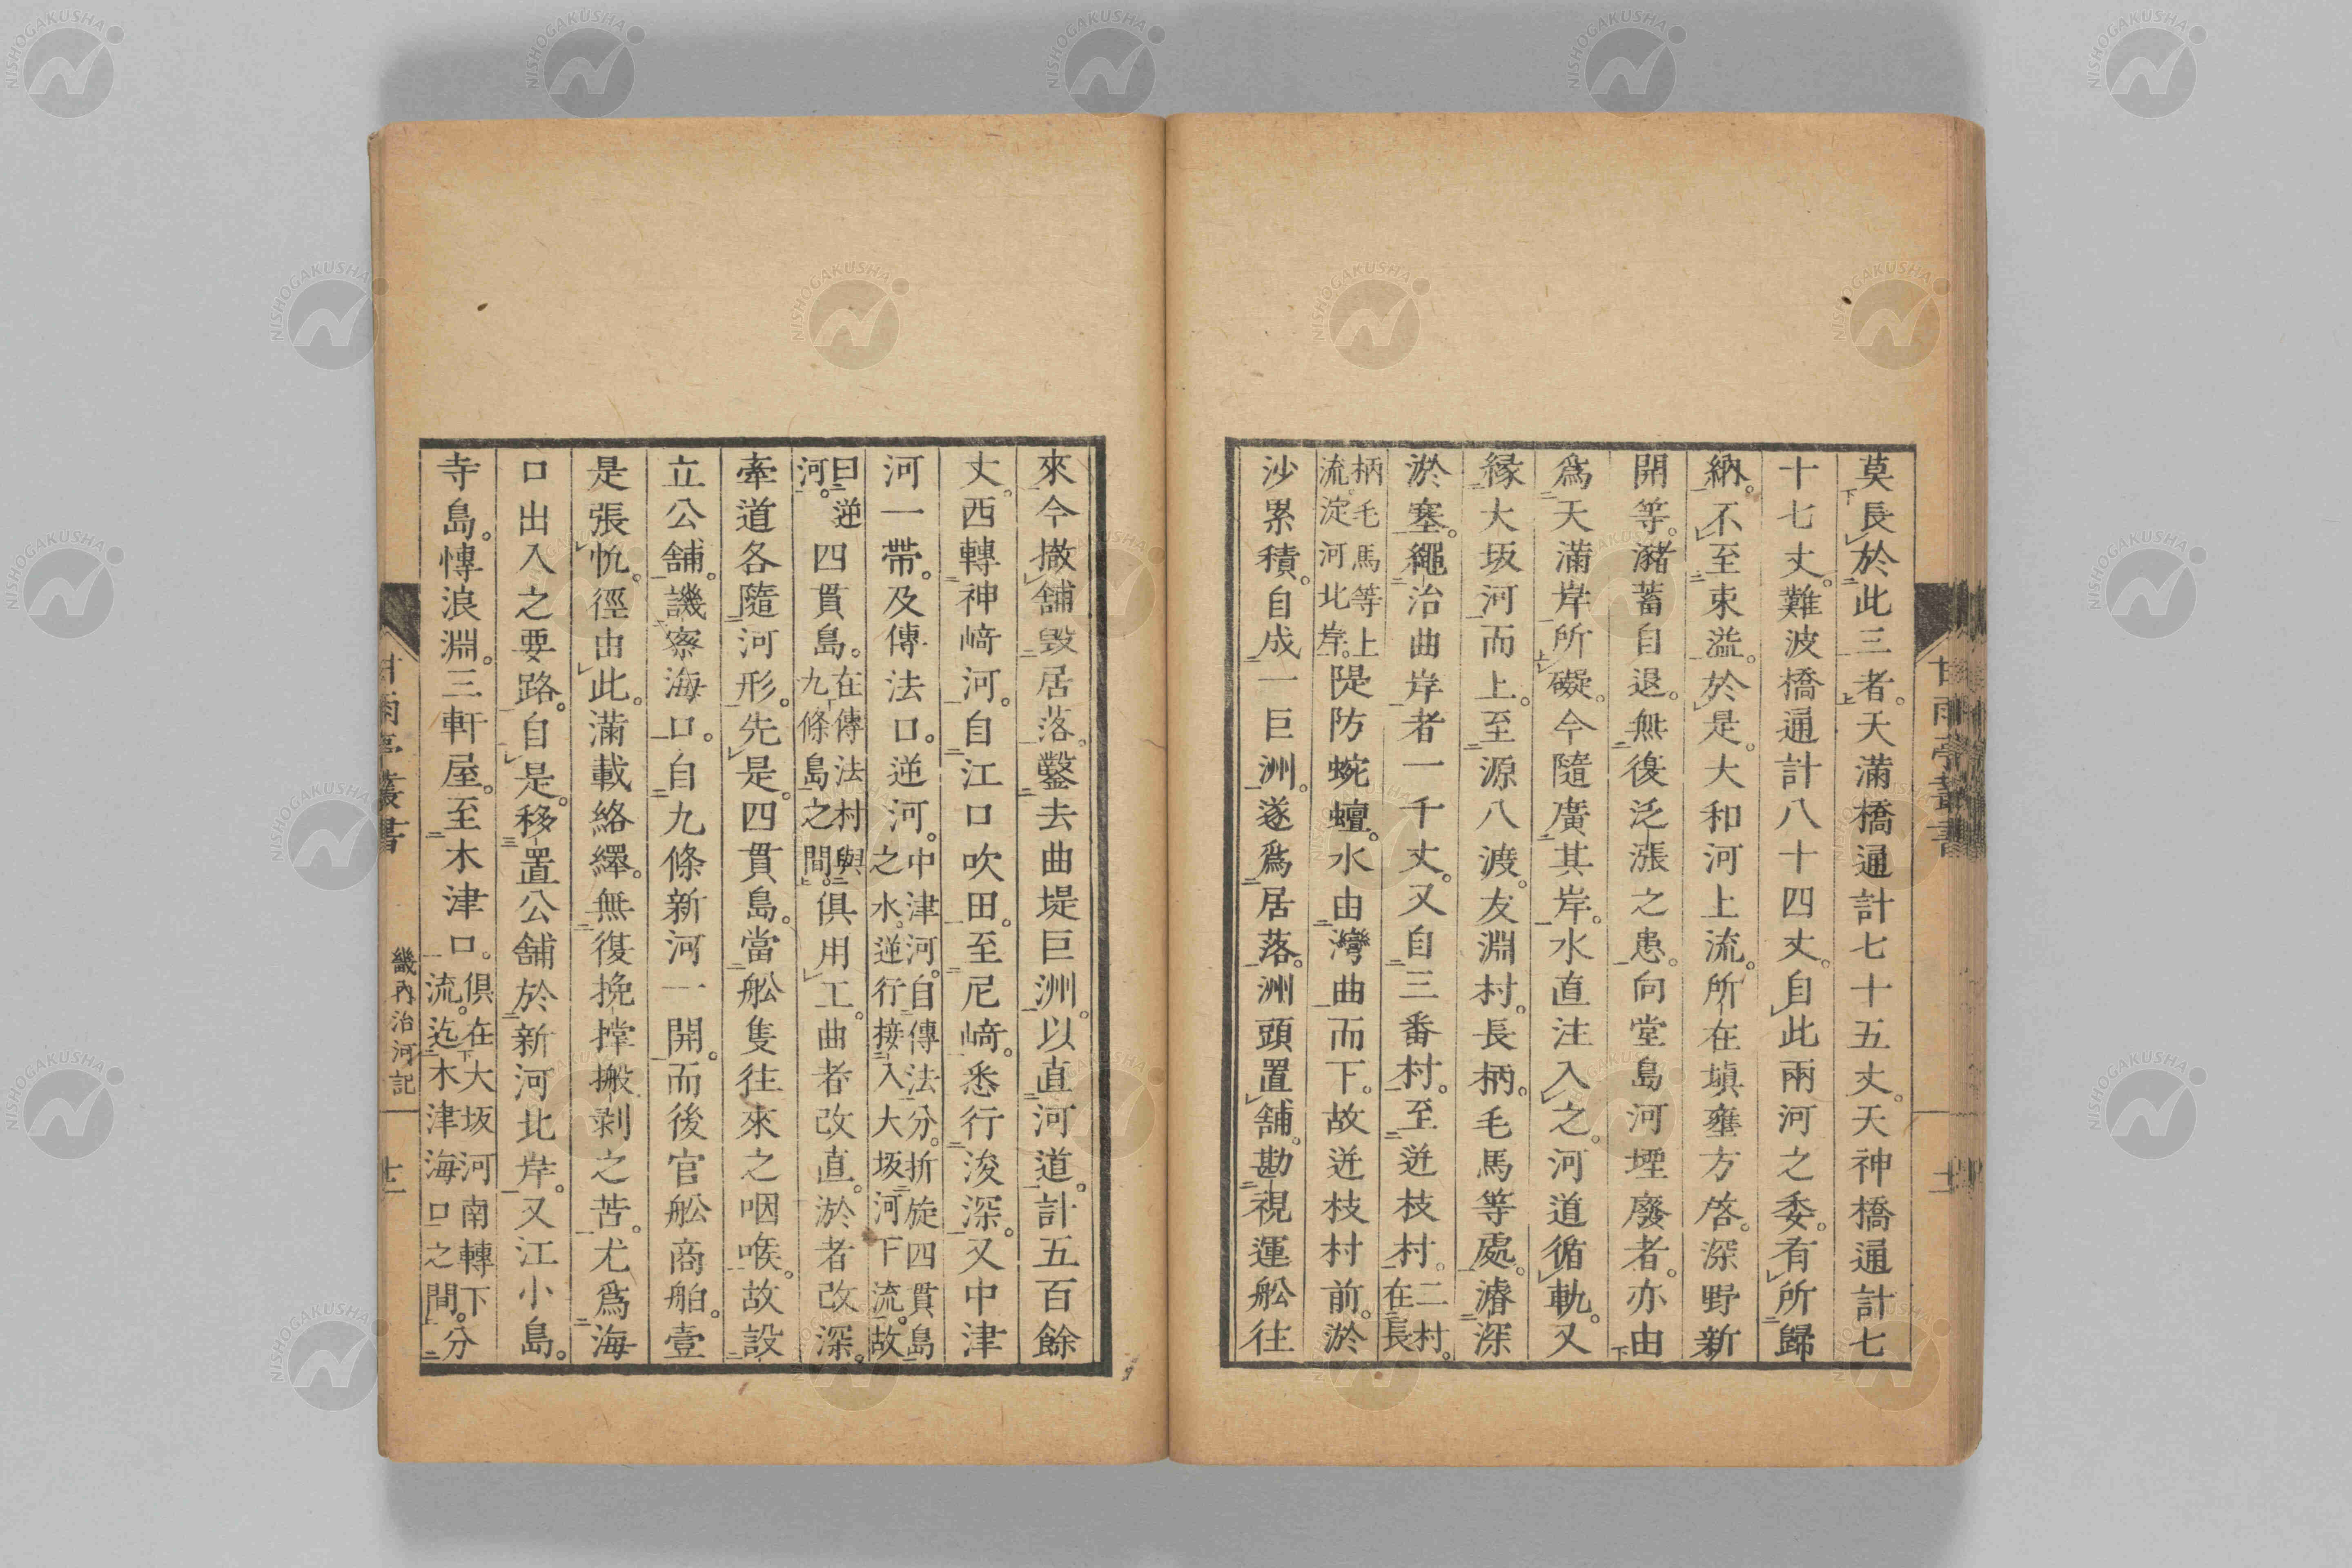 莫長於此三者。天滿橋通計七十五丈。天神橋通計七
十七丈。難波橋通計八十四丈。自此兩河之委。有所歸
納。不至束溢。於是。大和河上流。所在塡壅方啓。深野新
開等。瀦蓄自退。無復泛漲之患。向堂島河堙廢者。亦由
爲天滿岸所礙。今隨廣其岸。水直注入之。河道循軌。又
縁大坂河而上。至源八渡。友淵村。長柄。毛馬等處。濬深
淤塞。繩治曲岸者一千丈。又自三番村。至逆枝村。二村。在長
柄毛馬等上流。淀河北岸。隄防蜿蟺。水由灣曲而下。故逆枝村前。淤
沙累積。自成一巨洲。遂爲居落。洲頭置舖。勘視運舩往
甘雨亭叢書
來今撤舖毀居落。鑿去曲堤巨洲。以直河道。計五百餘
丈。西轉神﨑河。自江口吹田。至尼﨑。悉行浚深。又中津
河一帶。及傳法口。逆河。中津河。自傳法分。折旋四貫島之水。逆行接入大坂河下流。故
曰逆河。四貫島。在傳法村與九條島之間。俱用工。曲者改直。淤者改深。
牽道各隨河形。先是。四貫島。當舩隻往來之咽喉。故設
立公舖。譏察海口。自九條新河一開。而後官舩商舶。壹
是張帆。徑由此。滿載絡繹。無復挽撑搬剥之苦。尤爲海
口出入之要路。自是。移置公舖於新河北岸。又江小島。
寺島。慱浪淵。三軒屋。至木津口。俱在大坂河南轉下分流。迄木津海口之間。
甘雨亭叢書
畿内治河記
十二
NISHOGAKUSHA